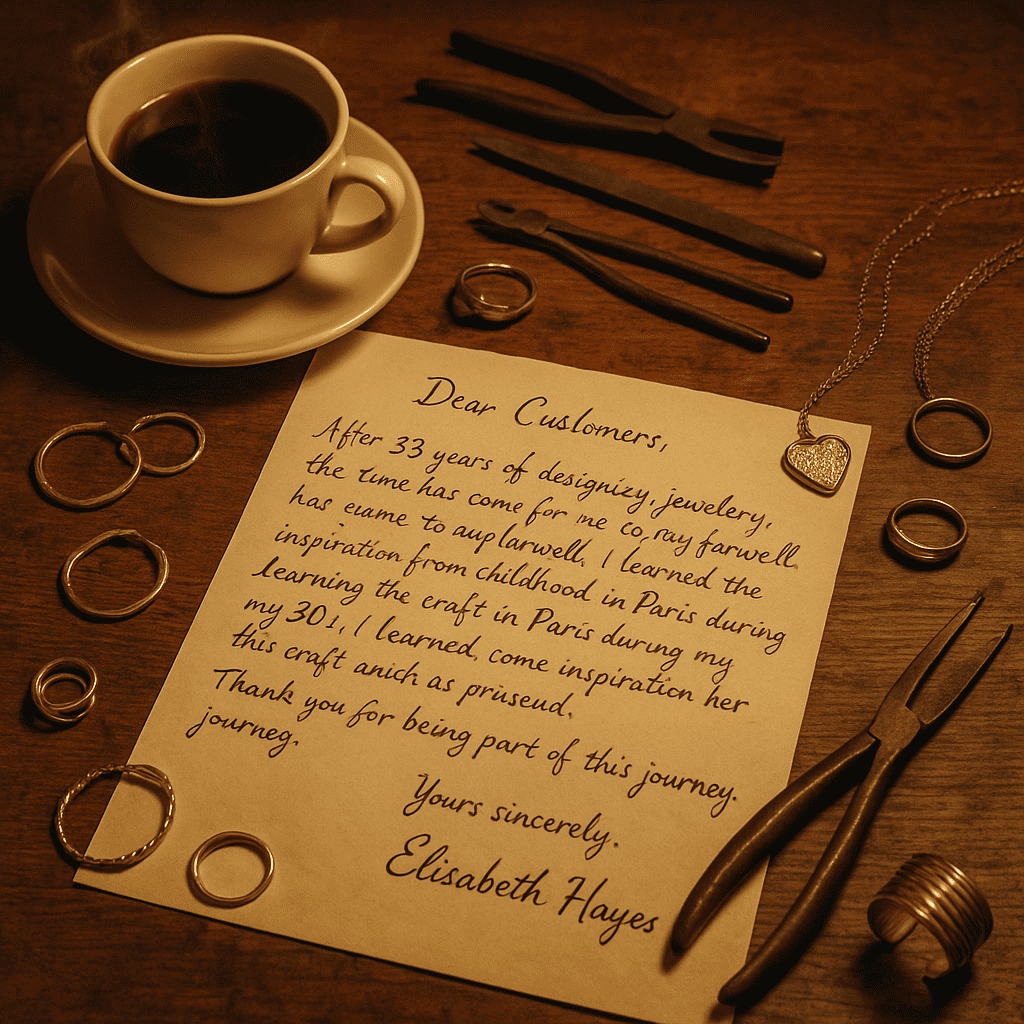 Dear Cuslomers,
After 33 years of designizy, jewelery,
the tume has come for me co, ray farwell.
has eame to aup larwell. I learned the
inspiration from childhood in Paris during
learning the eraft in Paris durung my
my 30 1, I learned, come inspiration her
this eraft anich as priuseud.
Thank you for being part of this journey.
journeg.
Yours sincerely.
Elisabeth Hayes